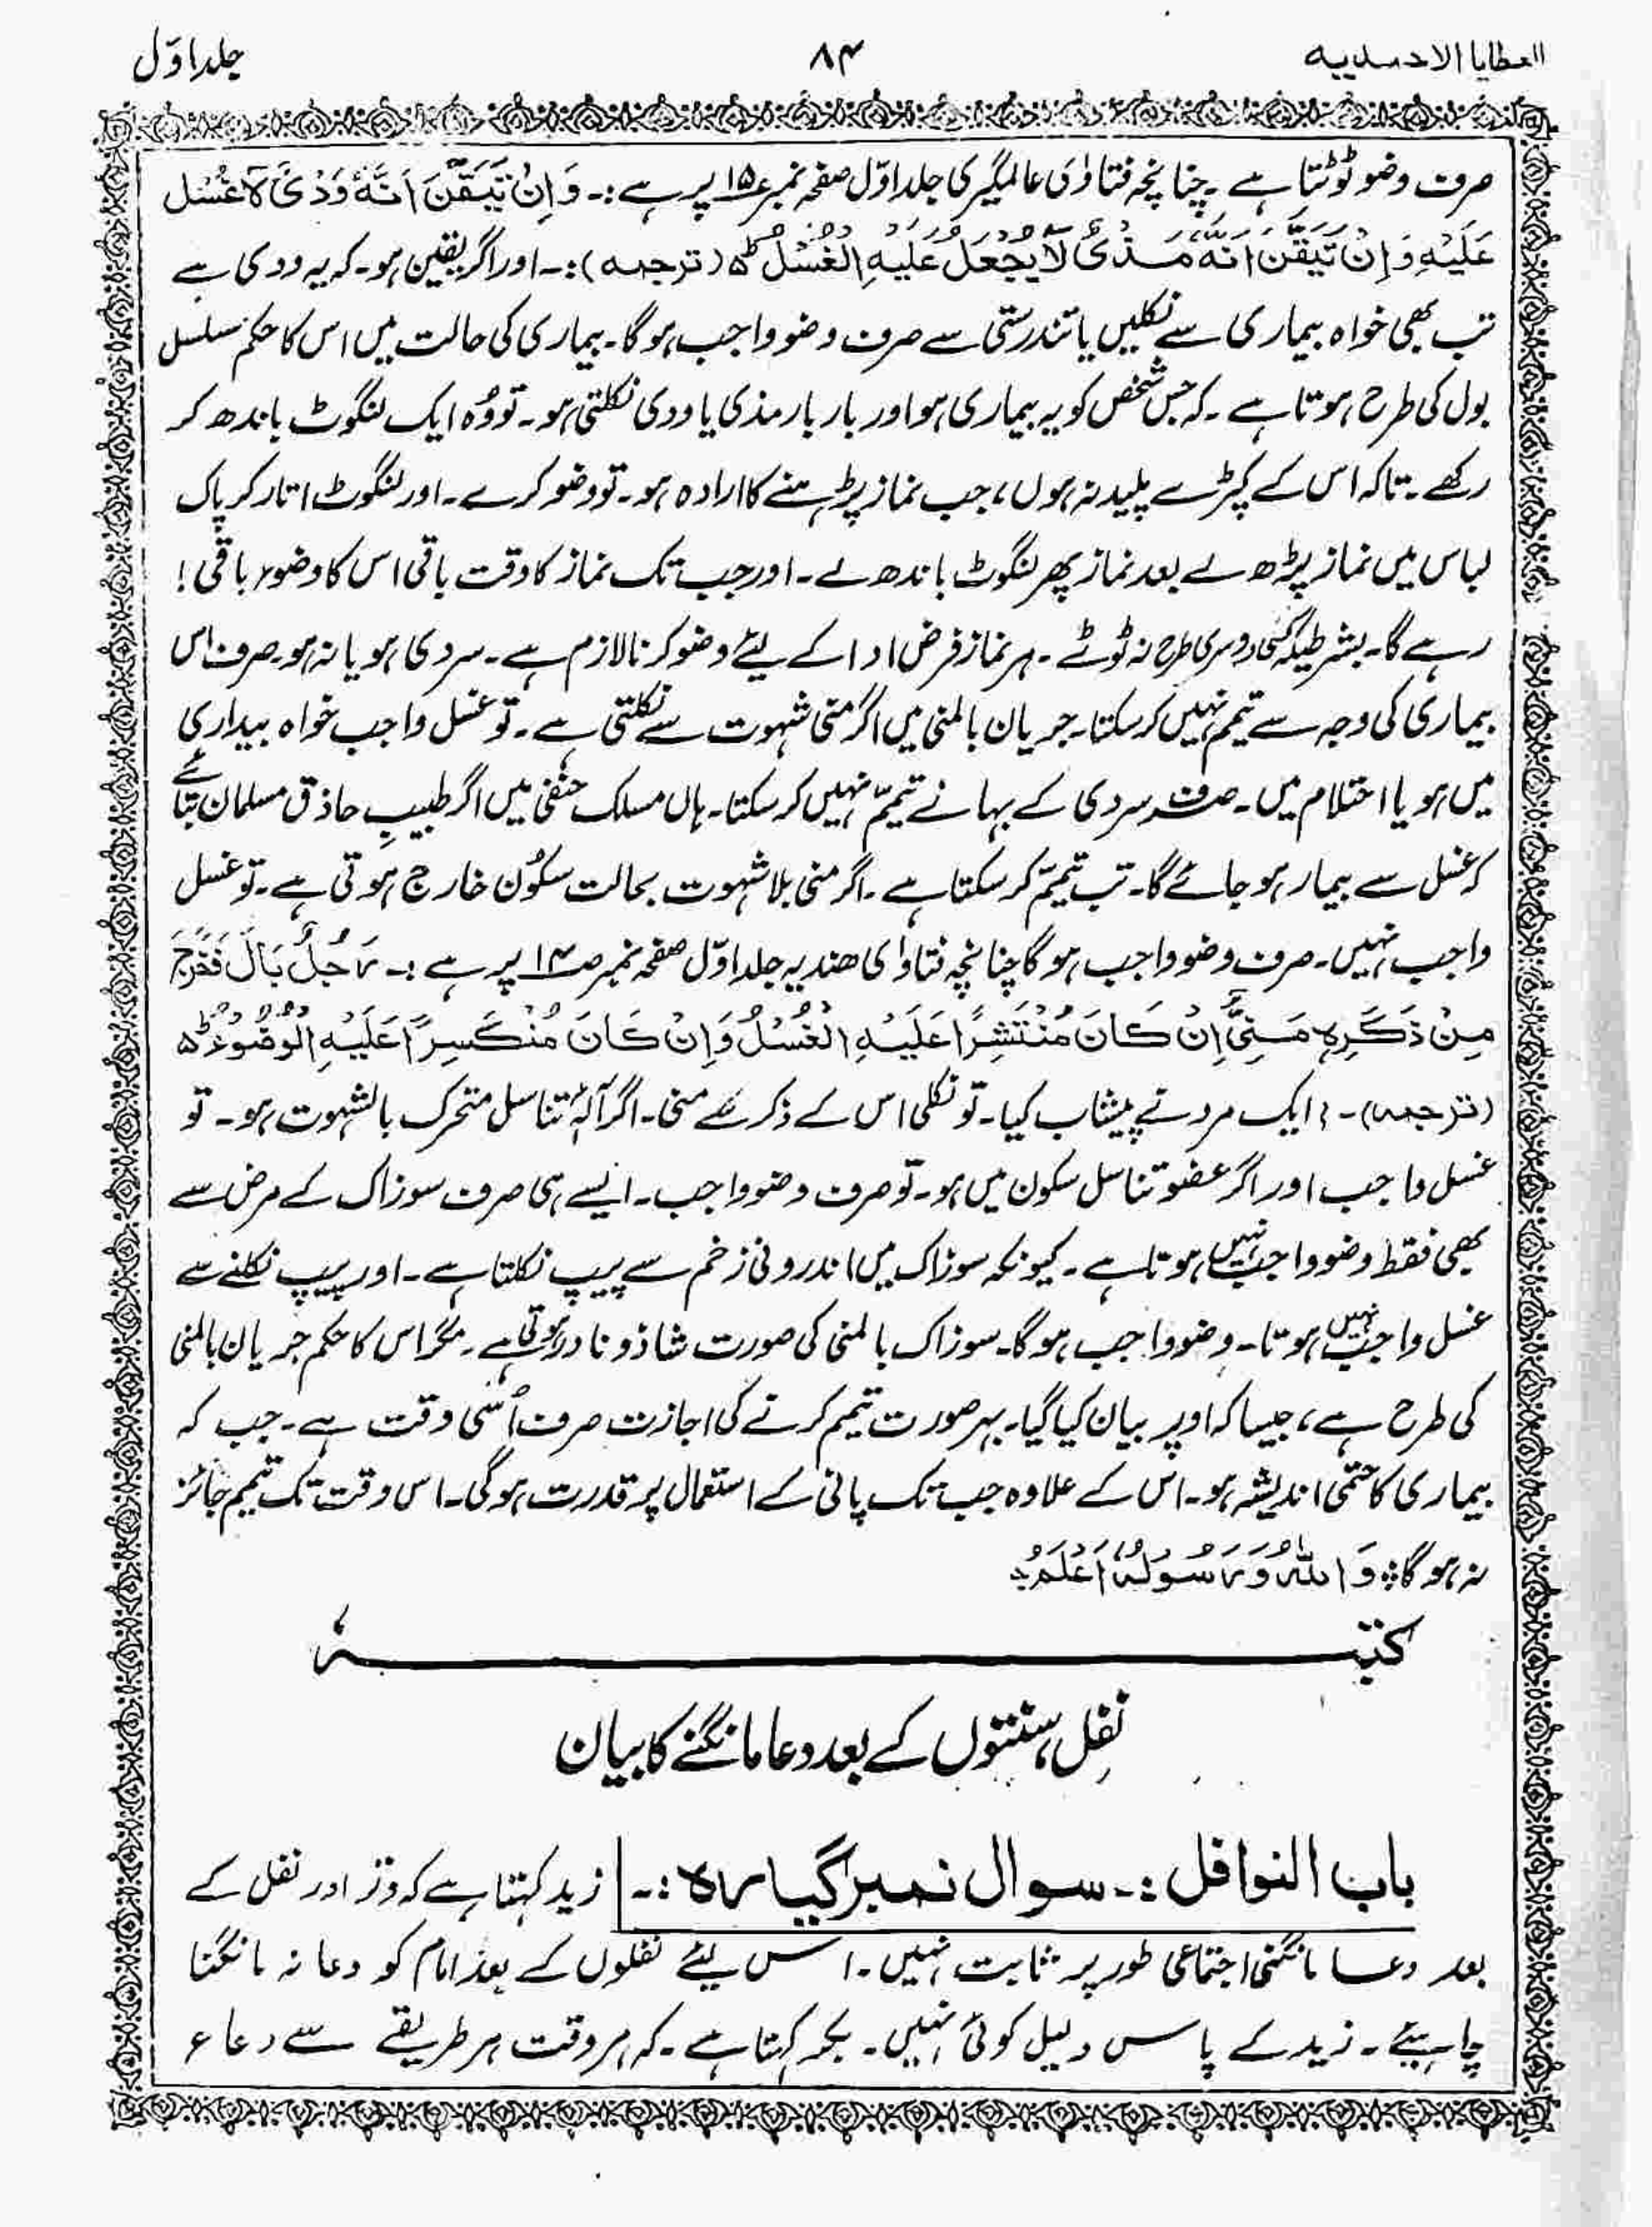 العطایا الاحمدیہ ۸۴ جلد اوّل
صرف وضو ٹوٹتا ہے ۔ چنانچہ فتاوٰی عالمگیری جلد اوّل صفحہ نمبر ۱۵ پر ہے :۔ وَاِنْ تَيَقَّنَ اَنَّهٗ وَدْیٌ لَا غُسْلَ
عَلَیْهِ وَاِنْ تَيَقَّنَ اَنَّهٗ مَذْیٌ لَا يُجْعَلُ عَلَيْهِ الْغُسْلُ ط۵ (ترجمہ) :۔ اور اگر یقین ہو۔ کہ یہ ودی ہے
تب بھی خواہ بیماری سے نکلیں یا تندرستی سے صرف وضو واجب ہو گا۔ بیماری کی حالت میں اس کا حکم سلسل
بول کی طرح ہوتا ہے ۔ کہ جس شخص کو یہ بیماری ہو اور بار بار مذی یا ودی نکلتی ہو۔ تو وُہ ایک لنگوٹ باندھ کر
رکھے ۔ تاکہ اس کے کپڑے پلید نہ ہوں، جب نماز پڑہنے کا ارادہ ہو۔ تو وضو کرے ۔ اور لنگوٹ اتار کر پاک
لباس میں نماز پڑھ لے بعد نماز پھر لنگوٹ باندھ لے ۔ اور جب تک نماز کا وقت باقی اس کا وضوء باقی !
رہے گا۔ بشرطیکہ کسی دوسری طرح نہ ٹوٹے ۔ ہر نماز فرض ادا کے لیئے وضو کرنا لازم ہے ۔ سردی ہو یا نہ ہو۔ صرف اس
بیماری کی وجہ سے تیمم نہیں کر سکتا۔ جریان بالمنی میں اگر منی شہوت سے نکلتی ہے ۔ تو غسل واجب خواہ بیداری
میں ہو یا احتلام میں ۔ صرف سردی کے بہانے تیممّ نہیں کر سکتا۔ ہاں مسلک حنفی میں اگر طبیبِ حاذق مسلمان بتائے
کہ غسل سے بیمار ہو جائے گا۔ تب تیممّ کر سکتا ہے ۔ اگر منی بلا شہوت بحالت سکوُن خارج ہوتی ہے ۔ تو غسل
واجب نہیں ۔ صرف وضو واجب ہو گا چنانچہ فتاوٰی ھندیہ جلد اوّل صفحہ نمبر ص۱۴ پر ہے :۔ رَجُلٌ بَالَ فَخَرَجَ
مِنْ ذَكَرِهٖ مَنِیٌّ اِنْ كَانَ مُنْتَشِرًا عَلَيْهِ الْغُسْلُ وَاِنْ كَانَ مُنْكَسِرًا عَلَيْهِ الْوُضُوْءُ ط۵
(ترجمہ) ۔: ایک مرد نے پیشاب کیا۔ تو نکلی اس کے ذکر سے منی۔ اگر آلۂ تناسل متحرک بالشہوت ہو۔ تو
غسل واجب اور اگر عضو تناسل سکون میں ہو۔ تو صرف وضو واجب ۔ ایسے ہی صرف سوزاک کے مرض سے
بھی فقط وضو واجب نہیں ہوتا ہے ۔ کیونکہ سوزاک میں اندرونی زخم سے پیپ نکلتا ہے ۔ اور پیپ نکلنے سے
غسل واجب نہیں ہوتا۔ وضو واجب ہو گا۔ سوزاک بالمنی کی صورت شاذ و نادر ہوتی ہے ۔ مگر اس کا حکم جریان بالمنی
کی طرح ہے، جیسا کہ اوپر بیان کیا گیا۔ بہر صورت تیمم کرنے کی اجازت صرف اُسی وقت ہے ۔ جب کہ
بیماری کا حتمی اندیشہ ہو۔ اس کے علاوہ جب تک پانی کے استعمال پر قدرت ہو گی۔ اس وقت تک تیمم جائز
نہ ہو گا؞ وَاللهُ وَرَسُوْلُهٗ اَعْلَمُ؞
کتبہٗ
نفل، سنتوں کے بعد دعا مانگنے کا بیان
باب النوافل :۔ سوال نمبر گیارہ :۔ زید کہتا ہے کہ وتر اور نفل کے
بعد دعا مانگنی اجتماعی طور پر ثابت نہیں ۔ اس لیئے نفلوں کے بعد امام کو دعا نہ مانگنا
چاہیئے ۔ زید کے پاس دلیل کوئی نہیں ۔ بکر کہتا ہے ۔ کہ ہر وقت ہر طریقے سے دعاء